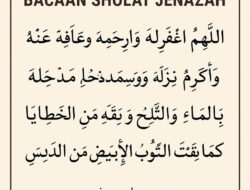 BACAAN SHOLAT JENAZAH
اللَّهُمَّ اغْفَرِلهَ وَارِحِمهَ وعَافِهَ عَنْهُ
وَأكرِمُ نِزَلَهَ وَوَسِمدخْلِ مَدْجِلهَ
بِالمَاءِ وَالثَّلِجْ وَ بَقَهِ مَنِ الخَطَايَا
كمَا بقَتَ الثَّوُبُ الأِبيَضِ مَن الدَنِسِ